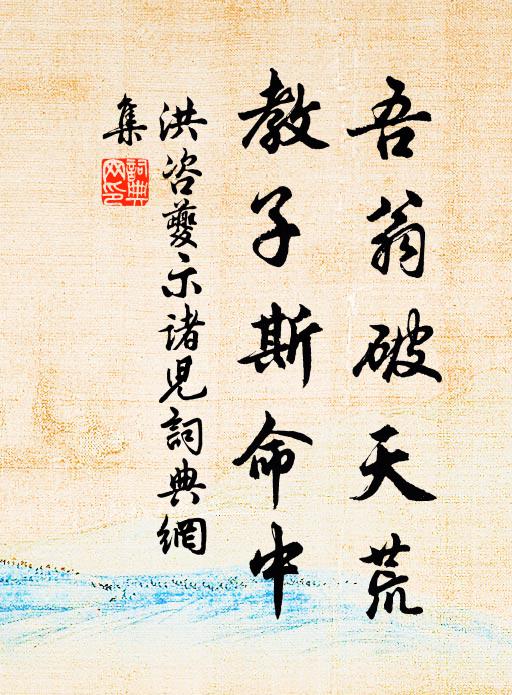 吾翁破天荒
教子斯命中
洪咨夔示诸児詞典網
集
詞典網印